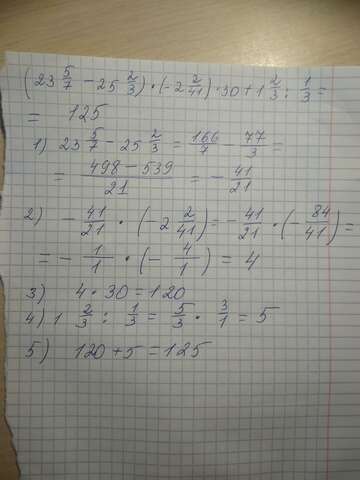 (23 5/7 − 25 2/3) · (−2 2/41) · 30 + 1 2/3 : 1/3 =
= 125
1) 23 5/7 − 25 2/3 = 166/7 − 77/3 =
= (498 − 539)/21 = − 41/21
2) − 41/21 · (−2 2/41) = − 41/21 · (− 84/41) =
= − 1/1 · (− 4/1) = 4
3) 4 · 30 = 120
4) 1 2/3 : 1/3 = 5/3 · 3/1 = 5
5) 120 + 5 = 125